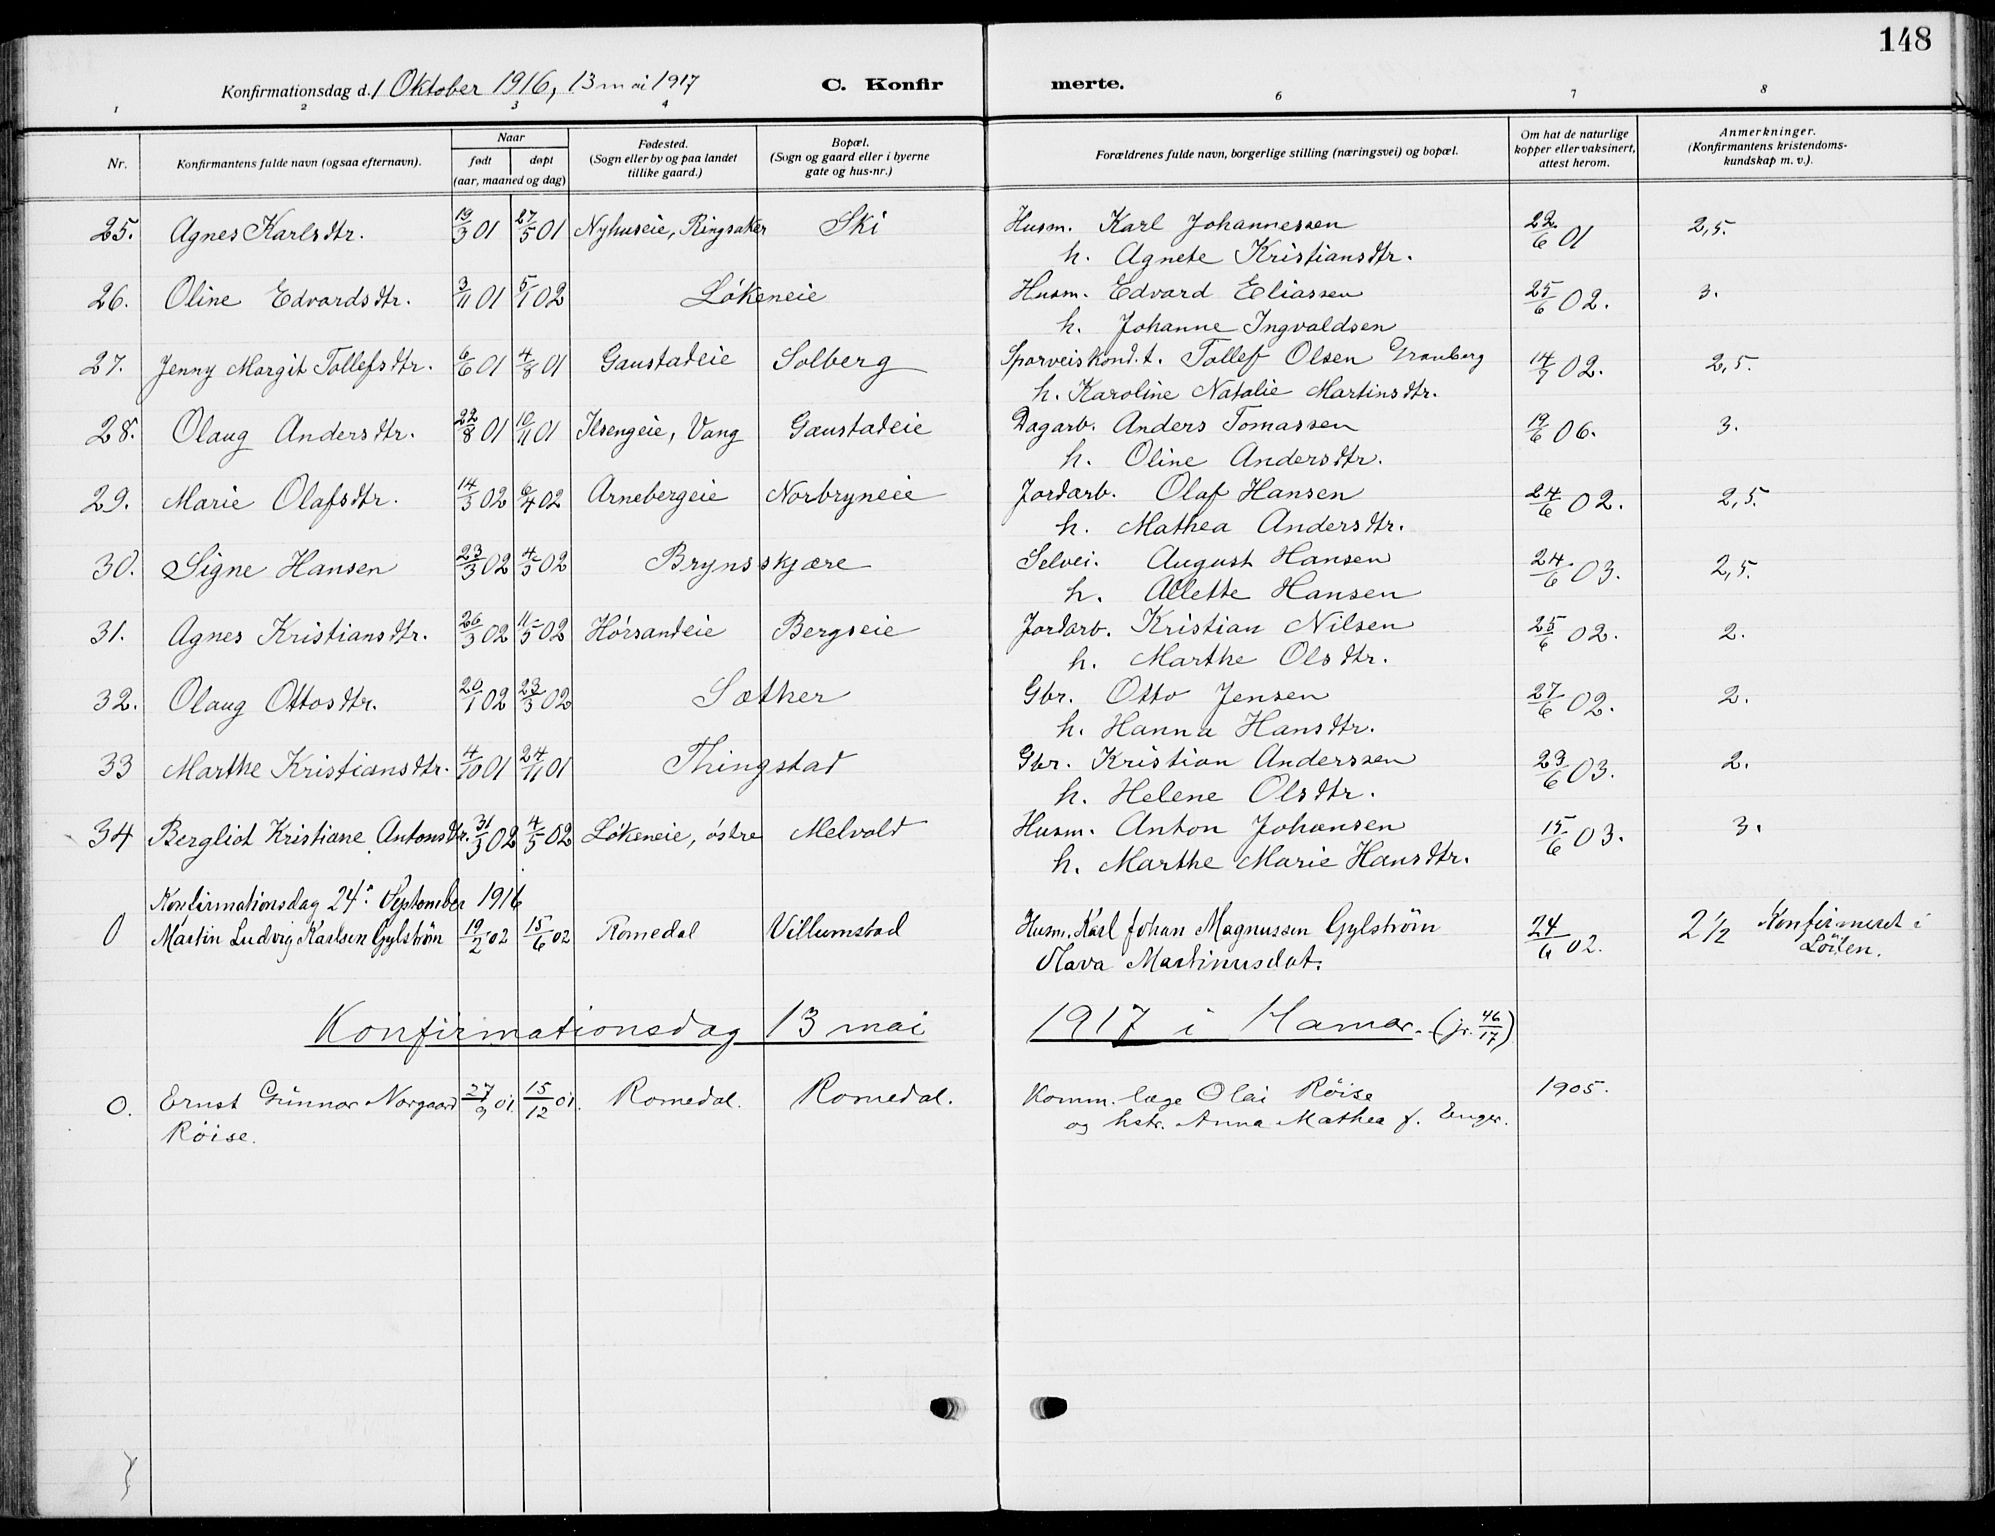 148
Konfirmationsdag d. 1 Oktober 1916, 13 mai 1917 C. Konfir merte.
1 2 3 4 6 7 8
Nr. Konfirmantens fulde navn (ogsaa efternavn). Naar født døpt (aar, maaned og dag) Fødested. (Sogn eller by og paa landet tillike gaard.) Bopæl. (Sogn og gaard eller i byerne gate og hus-nr.) Forældrenes fulde navn, borgerlige stilling (næringsvei) og bopæl. Om hat de naturlige kopper eller vaksinert, attest herom. Anmerkninger. (Konfirmantens kristendoms-kundskap m. v.).
25. Agnes Karlsdtr. 19/3 01 27/5 01 Nyhuseie, Ringsaker Ski Husm. Karl Johannessen 22/6 01 2,5.
h. Agnete Kristiansdtr.
26. Oline Edvardsdtr. 3/11 01 5/1 02 Løkeneie Husm. Edvard Eliassen 25/6 02. 3.
h. Johanne Ingvaldsen
27. Jenny Margit Tollefsdtr. 6/6 01 4/8 01 Gaustadeie Solberg Sporveiskond.t. Tollef Olsen Granberg 14/7 02. 2,5.
h. Karoline Natalie Martinsdtr.
28. Olaug Andersdtr. 22/8 01 10/11 01 Ilsengeie, Vang Gaustadeie Dagarb. Anders Tomassen 19/6 06. 3.
h. Oline Andersdtr.
29. Marie Olafsdtr. 14/3 02 6/4 02 Arnebergeie Norbryneie Jordarb. Olaf Hansen 24/6 02. 2,5.
h. Mathea Andersdtr.
30. Signe Hansen 23/3 02 4/5 02 Brynsskjære Selvei. August Hansen 24/6 03. 2,5.
h. Allette Hansen
31. Agnes Kristiansdtr. 26/3 02 11/5 02 Hørsandeie Bergseie Jordarb. Kristian Nilsen 25/6 02. 2.
h. Marthe Olsdtr.
32. Olaug Ottosdtr. 20/1 02 23/3 02 Sæther Gbr. Otto Jensen 27/6 02. 2.
h. Hanna Hansdtr.
33 Marthe Kristiansdtr. 4/10 01 24/11 01 Thingstad Gbr. Kristian Anderssen 23/6 03. 2.
h. Helene Olsdtr.
34 Bergliot Kristiane Antonsdtr. 31/3 02 4/5 02 Løkeneie, østre Melvold Husm. Anton Johansen 15/6 03. 3.
h. Marthe Marie Hansdtr.
Konfirmationsdag 24. September 1916
0 Martin Ludvig Karlsen Gylstrøm 19/2 02 15/6 02 Romedal Villumstad Husm. Karl Johan Magnussen Gylstrøm 24/6 02. 2 1/2 Konfirmeret i
Olava Martinusdat. Löiten.
Konfirmationsdag 13 mai 1917 i Hamar. (jr. 46/17)
0. Ernst Gunnar Norgaard 27/9 01. 15/12 01. Romedal. Romedal. Komm. læge Olai Røise 1905.
Røise. og hstr. Anna Mathea f. Enger.